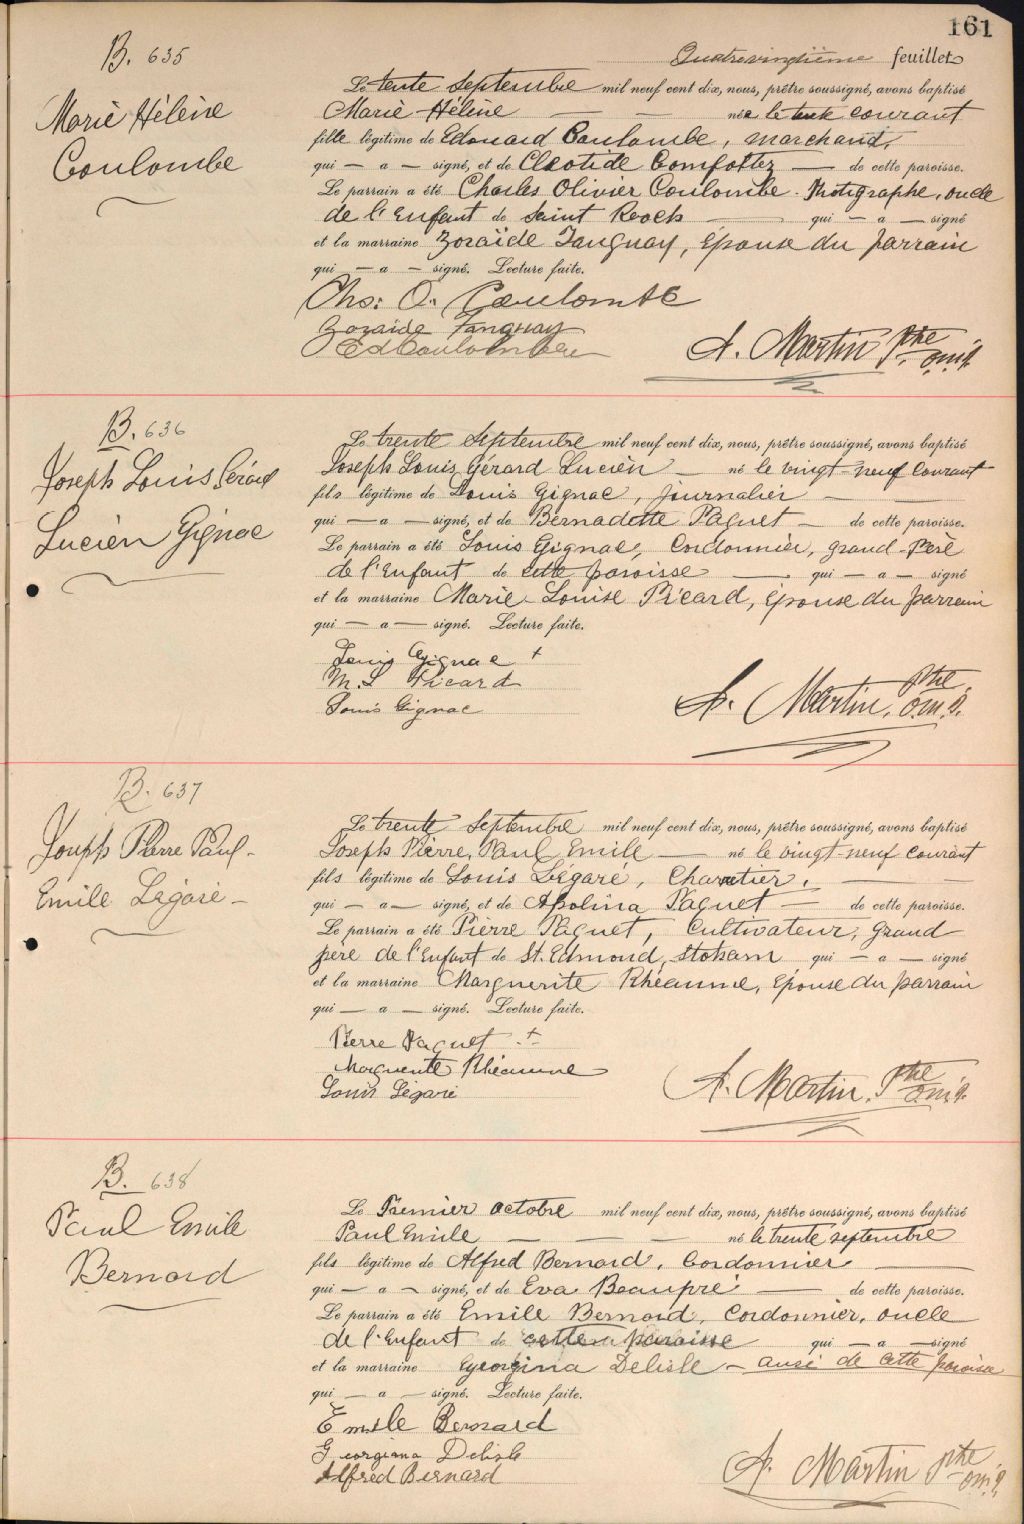 161
Quatrevingtième feuillet
B. 635
Marie Hélène
Coulombe
Le trente Septembre mil neuf cent dix, nous, prêtre soussigné, avons baptisé
Marie Hélène — née le courant
fille légitime de Edouard Coulombe, marchand,
qui — a — signé, et de Cleotide Comfottez — de cette paroisse.
Le parrain a été Charles Olivier Coulombe. Photographe, oncle
de l'Enfant de Saint Rochs — qui — a — signé
et la marraine Zoraïde Tanguay, Épouse du parrain
qui — a — signé. Lecture faite.
Chs: O. Coulombe
Zozaide Tanguay
Ed Coulombe
A. Martin Ptre
o.m.i.
B. 636
Joseph Louis Gérard
Lucien Gignac
Le trente Septembre mil neuf cent dix, nous, prêtre soussigné, avons baptisé
Joseph Louis Gérard Lucien — né le vingt-neuf courant
fils légitime de Louis Gignac, journalier —
qui — a — signé, et de Bernadette Paquet — de cette paroisse.
Le parrain a été Louis Gignac, Cordonnier, grand-Père
de l'Enfant de cette paroisse — qui — a — signé
et la marraine Marie-Louise Picard, Épouse du parrain
qui — a — signé. Lecture faite.
Louis Gignac +
M. L Picard
Louis Gignac
A. Martin, ptre.
o.m.i.
B. 637
Joseph Pierre Paul-
Emile Légaré -
Le trente Septembre mil neuf cent dix, nous, prêtre soussigné, avons baptisé
Joseph Pierre, Paul Emile — né le vingt-neuf courant
fils légitime de Louis Légaré, Charretier, —
qui — a — signé, et de Apolina Paquet — de cette paroisse.
Le parrain a été Pierre Paquet, Cultivateur, Grand
père de l'Enfant de St. Edmond, Stoham qui — a — signé
et la marraine Marguerite Rhéaume, Épouse du parrain
qui — a — signé. Lecture faite.
Pierre Paquet +
Marguerite Rhéaume
Louis Légaré
A. Martin, Ptre
o.m.i.
B. 638
Paul Emile
Bernard
Le Premier octobre mil neuf cent dix, nous, prêtre soussigné, avons baptisé
Paul Emile — — — né le trente septembre
fils légitime de Alfred Bernard, Cordonnier —
qui — a — signé, et de Eva Beaupré — de cette paroisse.
Le parrain a été Emile Bernard, Cordonnier, oncle
de l'Enfant de cette paroisse qui — a — signé
et la marraine Georgina Delisle — aussi de cette paroisse
qui — a — signé. Lecture faite.
Emile Bernard
Georgiana Delisle
Alfred Bernard
A. Martin ptre
o.m.i.